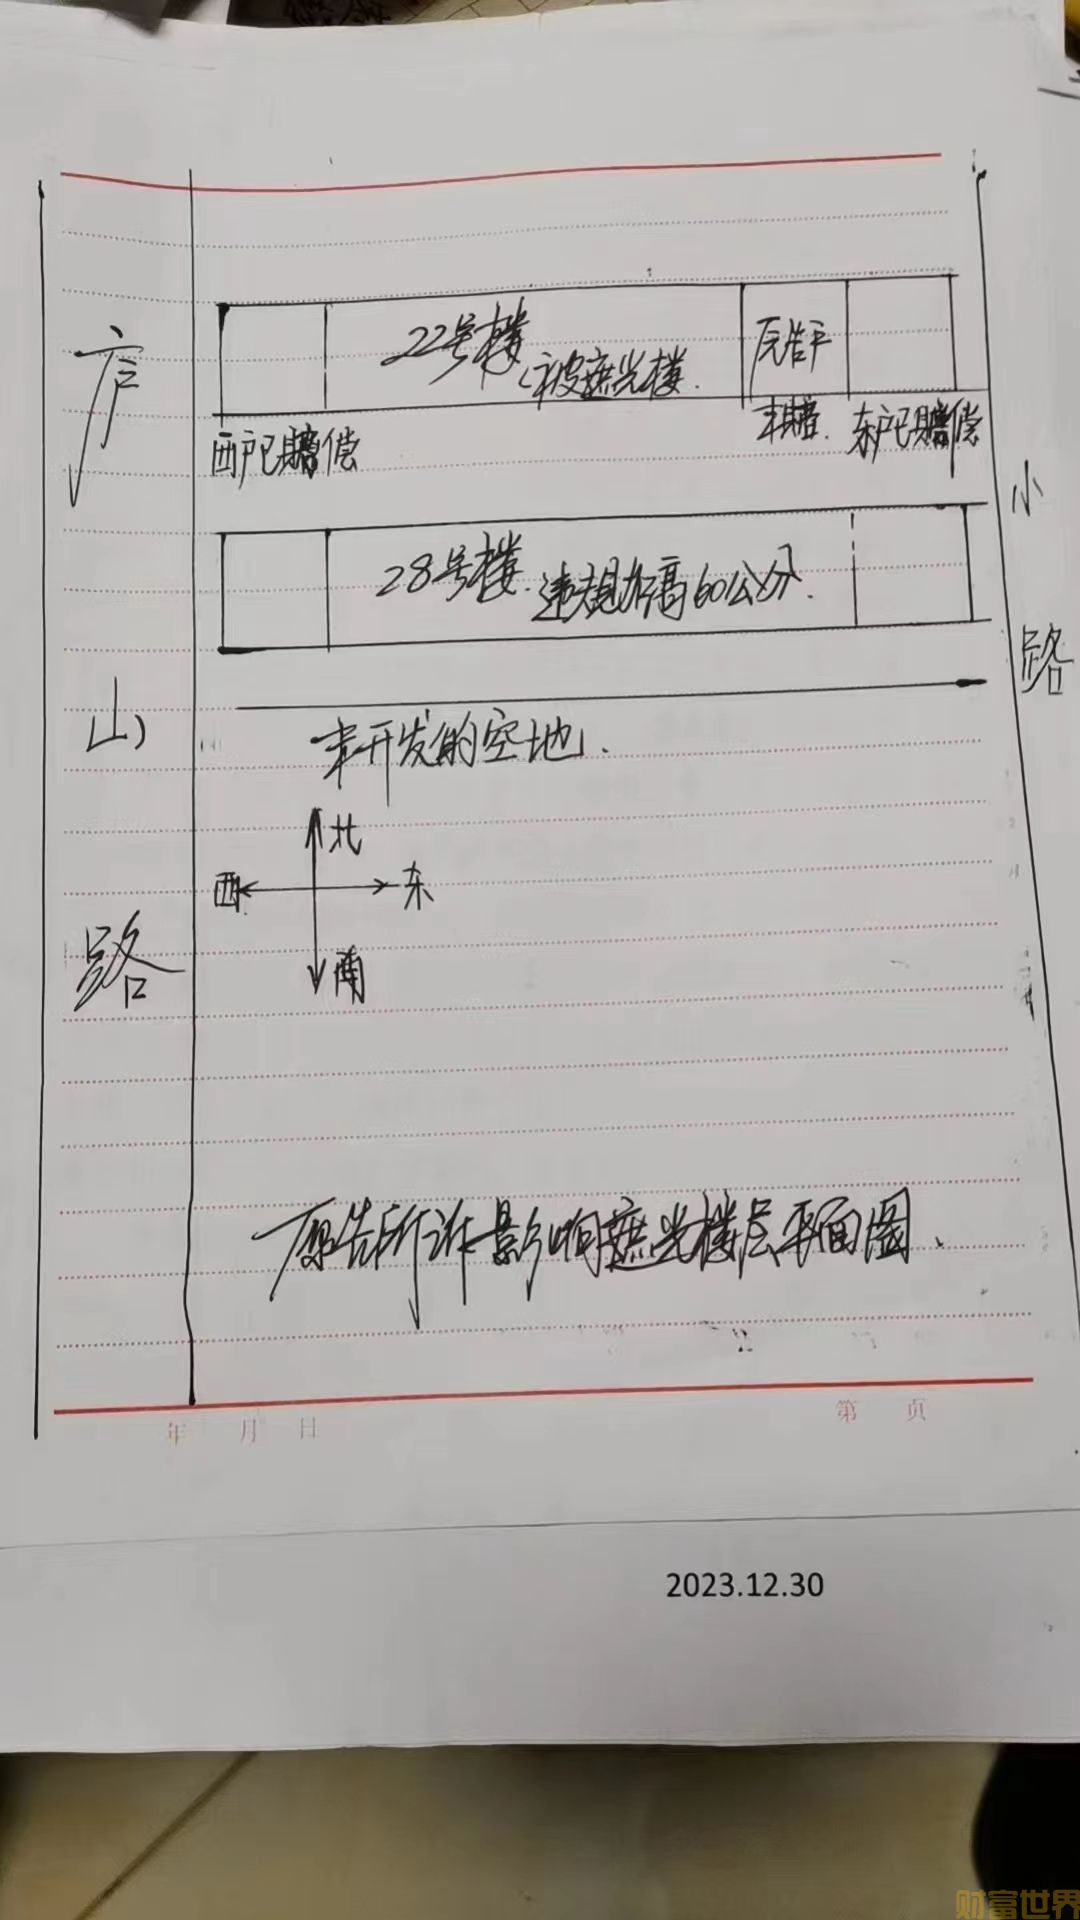 22号楼
被遮光楼.
原告户
西户已赔偿
未赔.
东户已赔偿
28号楼.
违规加高60公分.
未开发的空地.
北
西
东
南
山
路
小
路
原告所诉影响遮光楼层平面图、
年 月 日
第 页
2023.12.30
财富世界